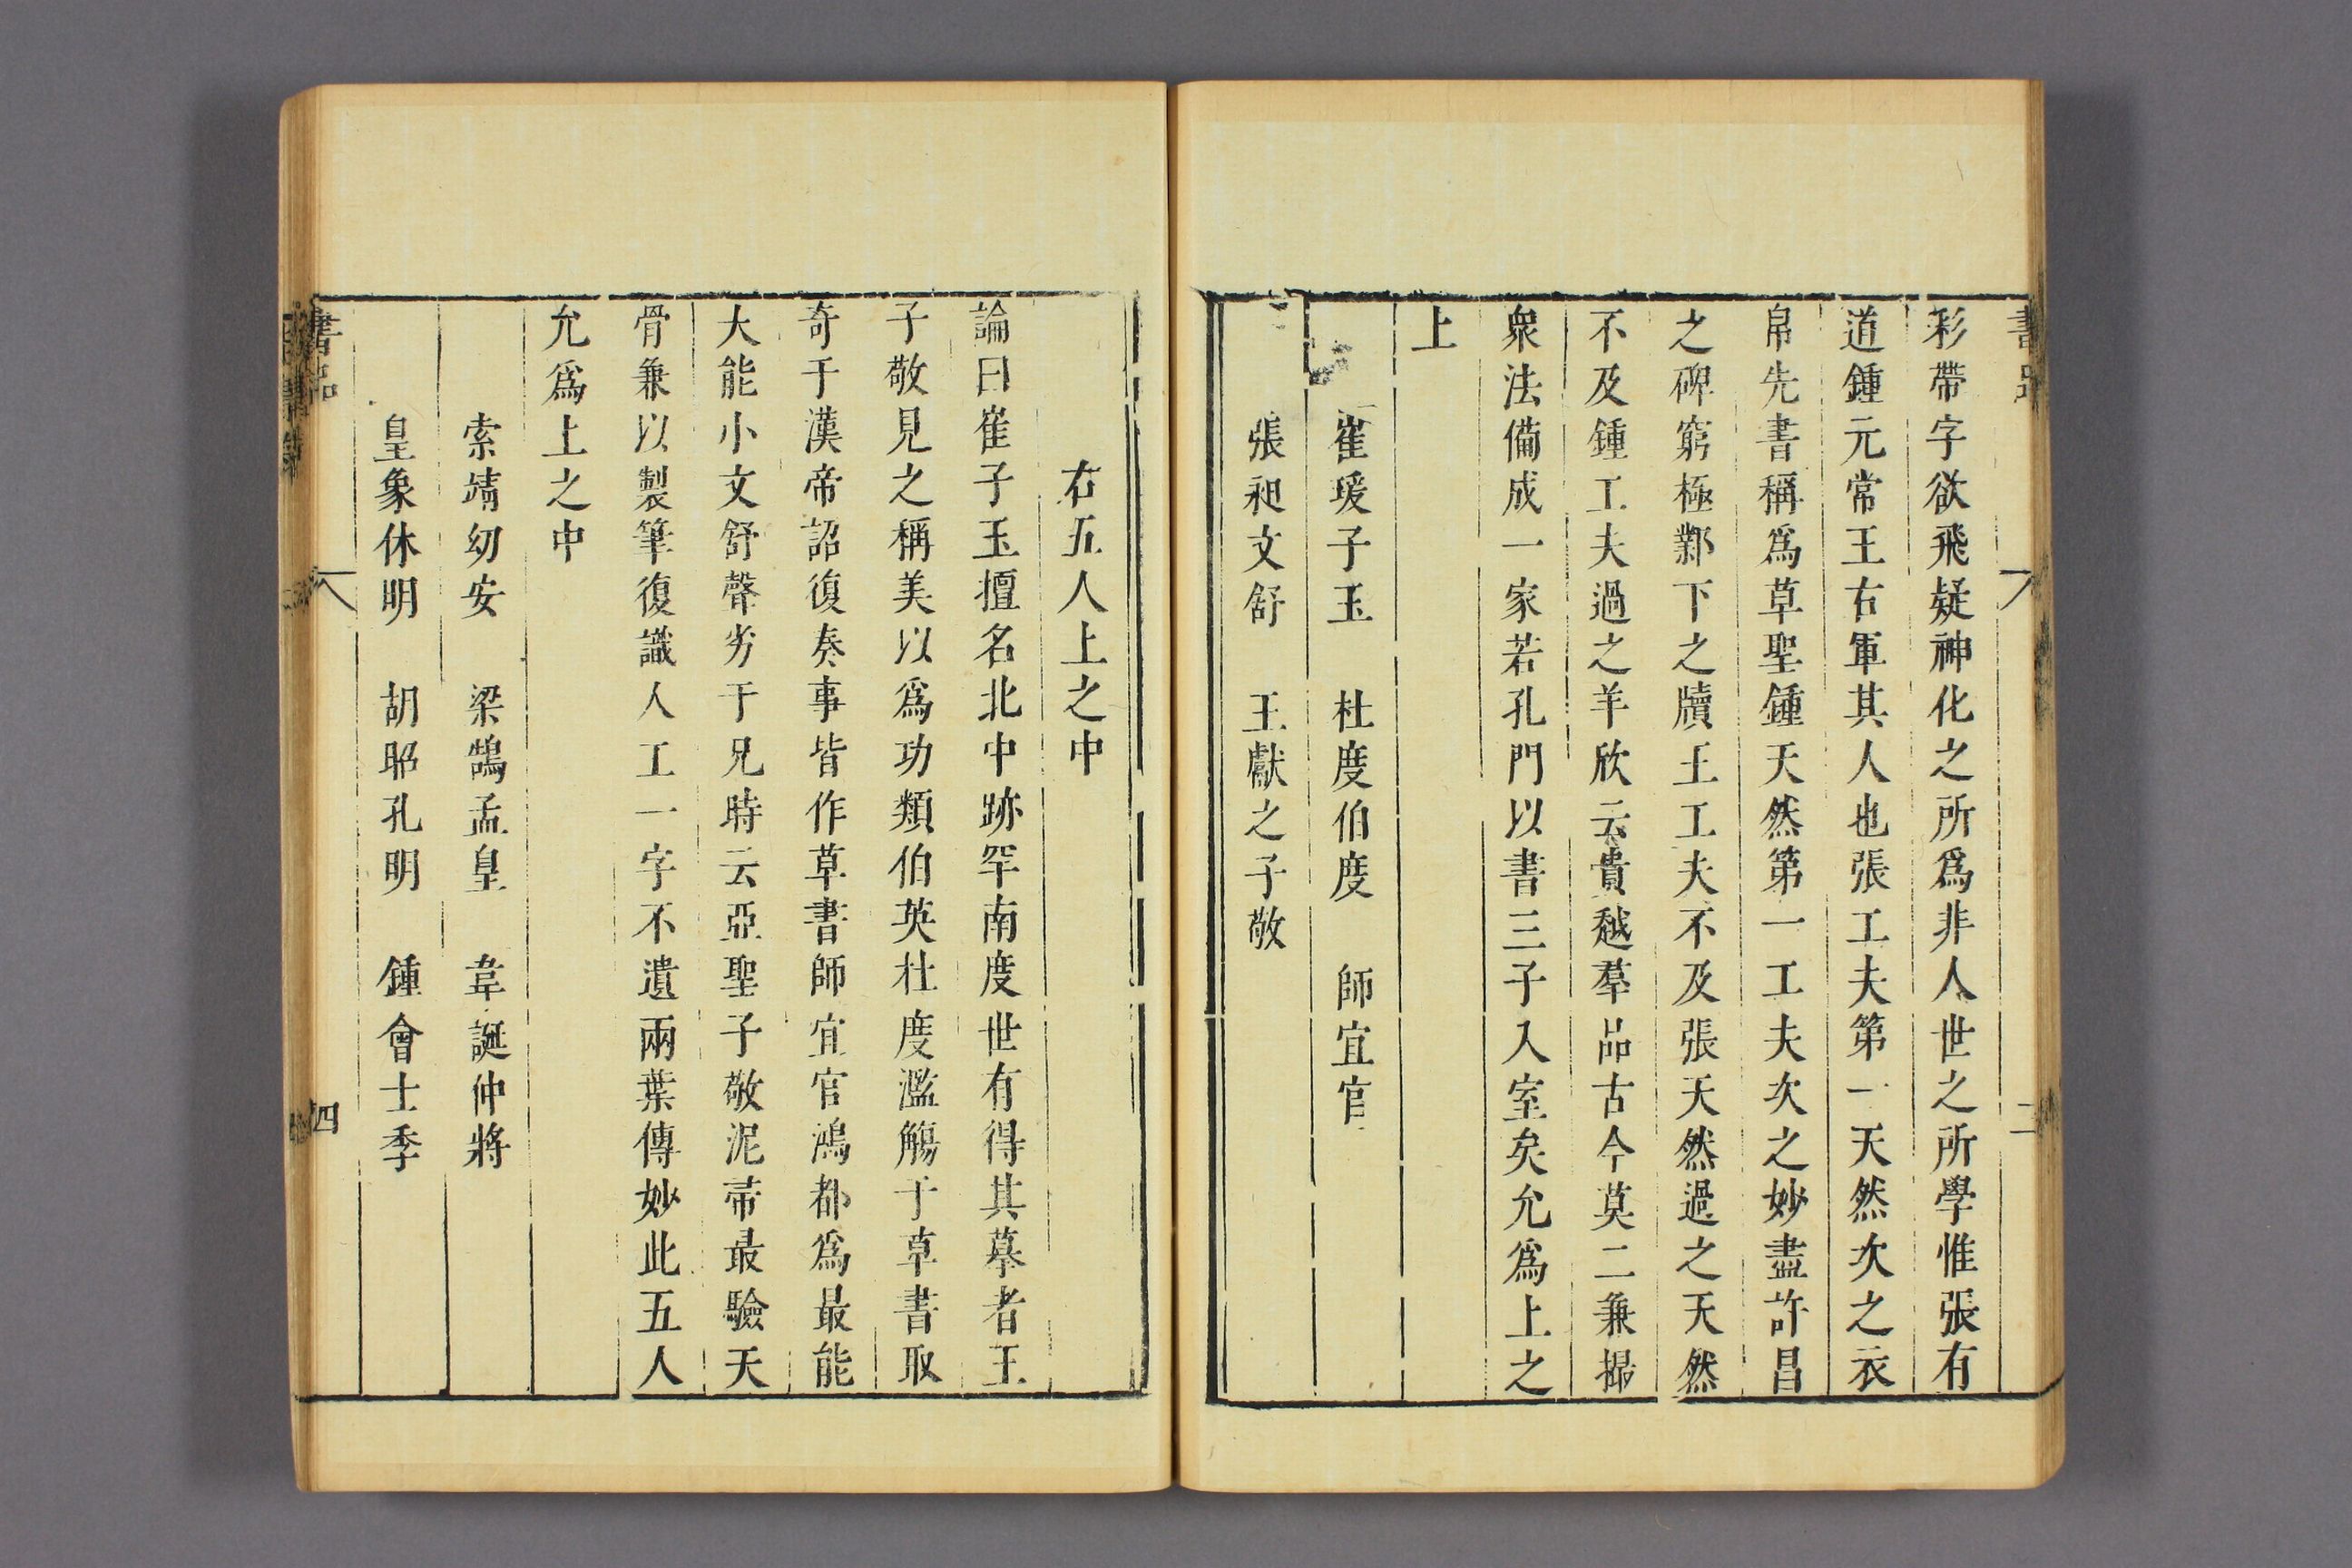 彩帶字欲飛疑神化之所爲非人世之所學惟張有
道鍾元常王右軍其人也張工夫第一天然次之衣
帛先書稱爲草聖鍾天然第一工夫次之妙盡許昌
之碑窮極鄴下之牘王工夫不及張天然過之天然
不及鍾工夫過之羊欣云貴越羣品古今莫二兼撮
衆法備成一家若孔門以書三子入室矣允爲上之
上
崔瑗子玉　杜度伯度　師宜官
張昶文舒　王獻之子敬
右五人上之中
論曰崔子玉擅名北中跡罕南度世有得其摹者王
子敬見之稱美以爲功類伯英杜度濫觴于草書取
奇于漢帝詔復奏事皆作草書師宜官鴻都爲最能
大能小文舒聲劣于兄時云亞聖子敬泥帚最驗天
骨兼以製筆復識人工一字不遺兩葉傳妙此五人
允爲上之中
索靖幼安　梁鵠孟皇　韋誕仲將
皇象休明　胡昭孔明　鍾會士季
書品
四